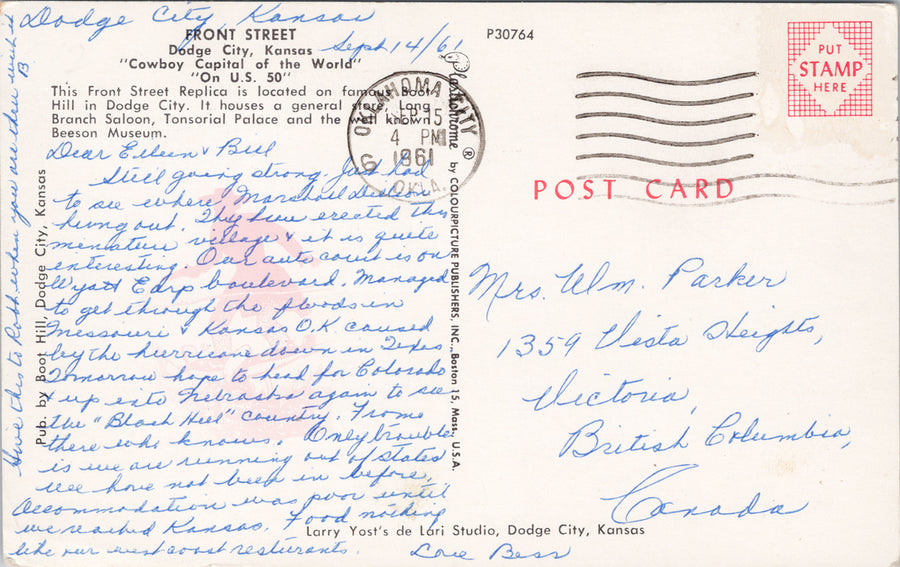 Dodge City, Kansas
Sept 14/61
FRONT STREET
Dodge City, Kansas
"Cowboy Capital of the World"
"On U.S. 50"
This Front Street Replica is located on famous Boot
Hill in Dodge City. It houses a general store, Long
Branch Saloon, Tonsorial Palace and the well known
Beeson Museum.
P30764
OKLAHOMA CITY
SEP 15
4 PM
1961
OKLA.
PUT
STAMP
HERE
POST CARD
Dear Eileen & Bill
Still going strong. Just had
to see where Marshall Dillon
hung out. They have erected this
miniature village & it is quite
interesting. Our auto court is on
Wyatt Earp boulevard. Managed
to get through the floods in
Missouri & Kansas O.K. caused
by the hurricane down in Texas.
Tomorrow hope to head for Colorado
& up into Nebraska again to see
the "Black Hill" country. From
there who knows. Only trouble
is we are running out of states
we have not been in before.
Accommodation was poor until
we reached Kansas. Food nothing
like our west coast resturants.
Love Bess
Give this to Robb when you are thru with it
B
Mrs. Wm. Parker
1359 Vista Heights,
Victoria,
British Columbia,
Canada
Pub. by Boot Hill, Dodge City, Kansas
Plastichrome ® by COLOURPICTURE PUBLISHERS, INC., Boston 15, Mass., U.S.A.
Larry Yost's de Lari Studio, Dodge City, Kansas